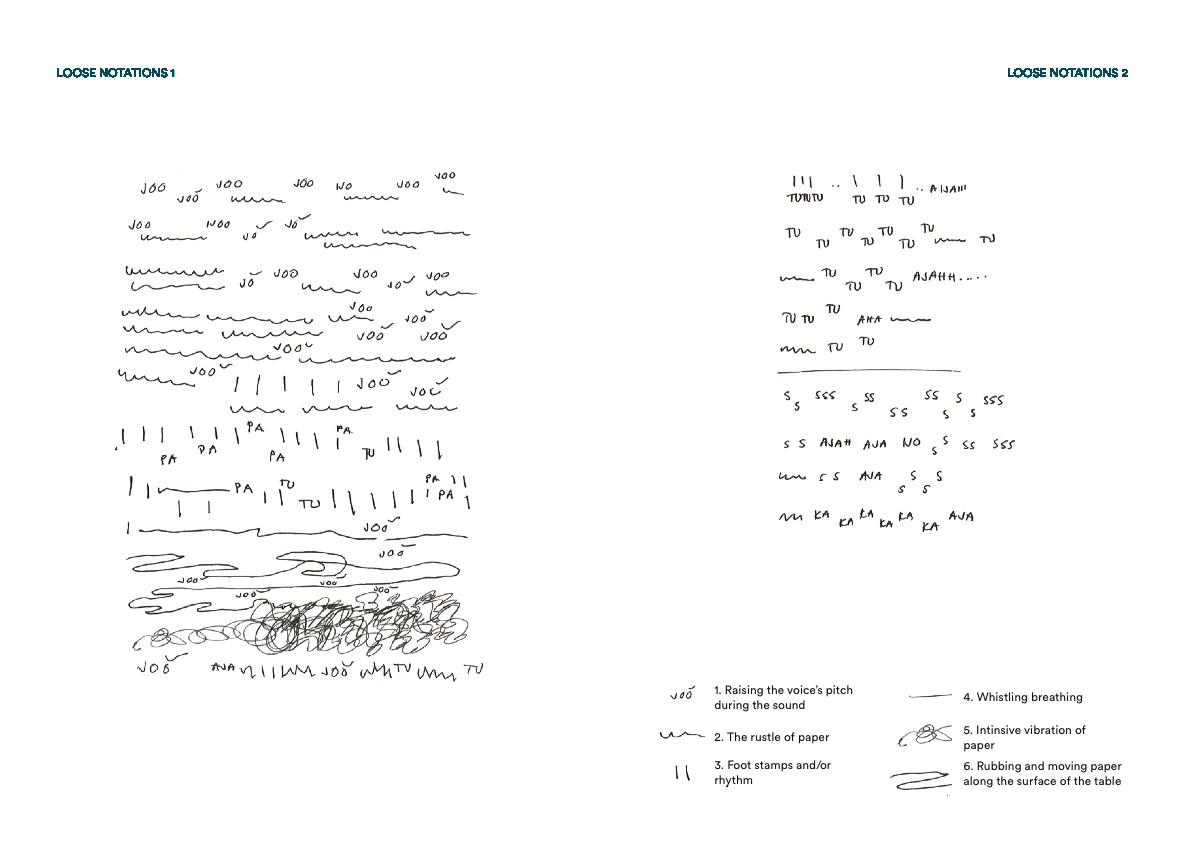 LOOSE NOTATIONS 1
JOO JOŎ JOO JOO NO JOO JOO
JOO NOO JŎ JŎ
JŎ JOO JOO JŎ JOO
JOO JOŎ
JOŎ JOŎ
JOŎ
JOŎ JOŎ JOŎ
PA PA
PA PA PA TU
PA TU TU PA PA
JOŎ
JOŎ
JOŎ JOŎ
JOŎ JOŎ
JOŎ AJA JOŎ TU TU
LOOSE NOTATIONS 2
TUTUTU .. TU TU TU .. AIJAIII
TU TU TU TU TU TU TU TU
TU TU TU TU AJAHH.....
TU TU TU AHA
TU TU
S S SSS S SS SS SS S S S SSS
S S AJAH AJA NO S S SS SSS
S S AJA S S S S
KA KA KA KA KA KA AJA
JOŎ 1. Raising the voice's pitch
during the sound
2. The rustle of paper
3. Foot stamps and/or
rhythm
4. Whistling breathing
5. Intinsive vibration of
paper
6. Rubbing and moving paper
along the surface of the table